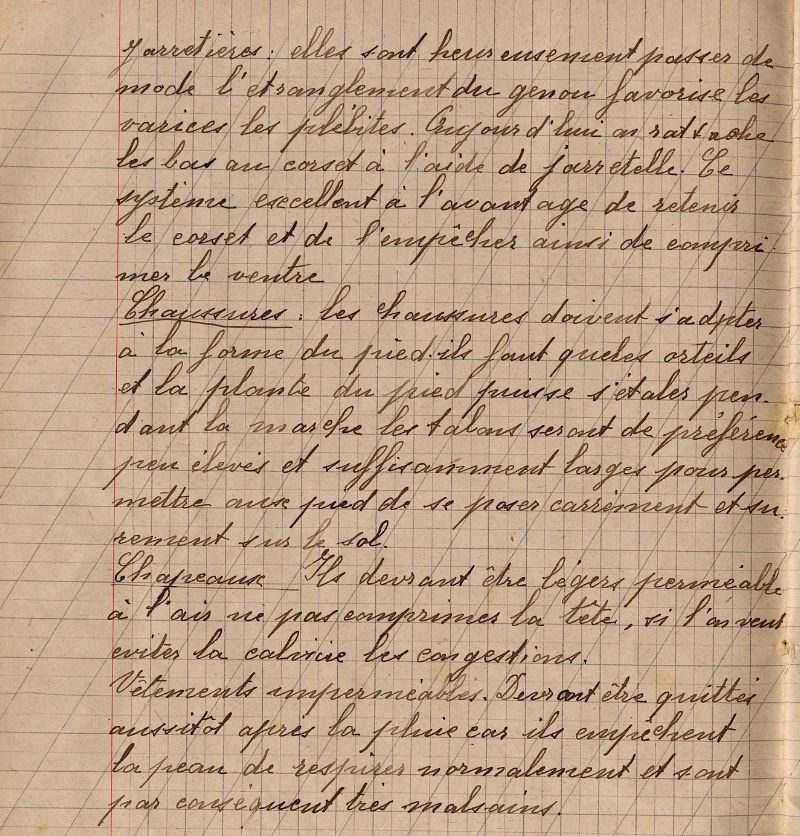 Jarretières : elles sont heureusement passer de
mode l'étranglement du genou favorise les
varices les plébites. Aujourd'hui on rattache
les bas au corset à l'aide de jarretelle. Ce
système excellent à l'avantage de retenir
le corset et de l'empêcher ainsi de compri-
mer le ventre
Chaussures : les chaussures doivent s'adpter
à la forme du pied. ils faut queles orteils
et la plante du pied puisse s'étaler pen-
dant la marche les talons seront de préférence
peu élevés et suffisamment larges pour per-
mettre aux pied de se poser carrément et su-
rement sur le sol.
Chapeaux Ils devront être légers perméable
à l'air ne pas comprimer la tête, si l'on veut
eviter la calvicie les congestions.
Vêtements imperméables. Devront être quittés
aussitôt après la pluie car ils empêchent
la peau de respirer normalement et sont
par conséquent très malsains.